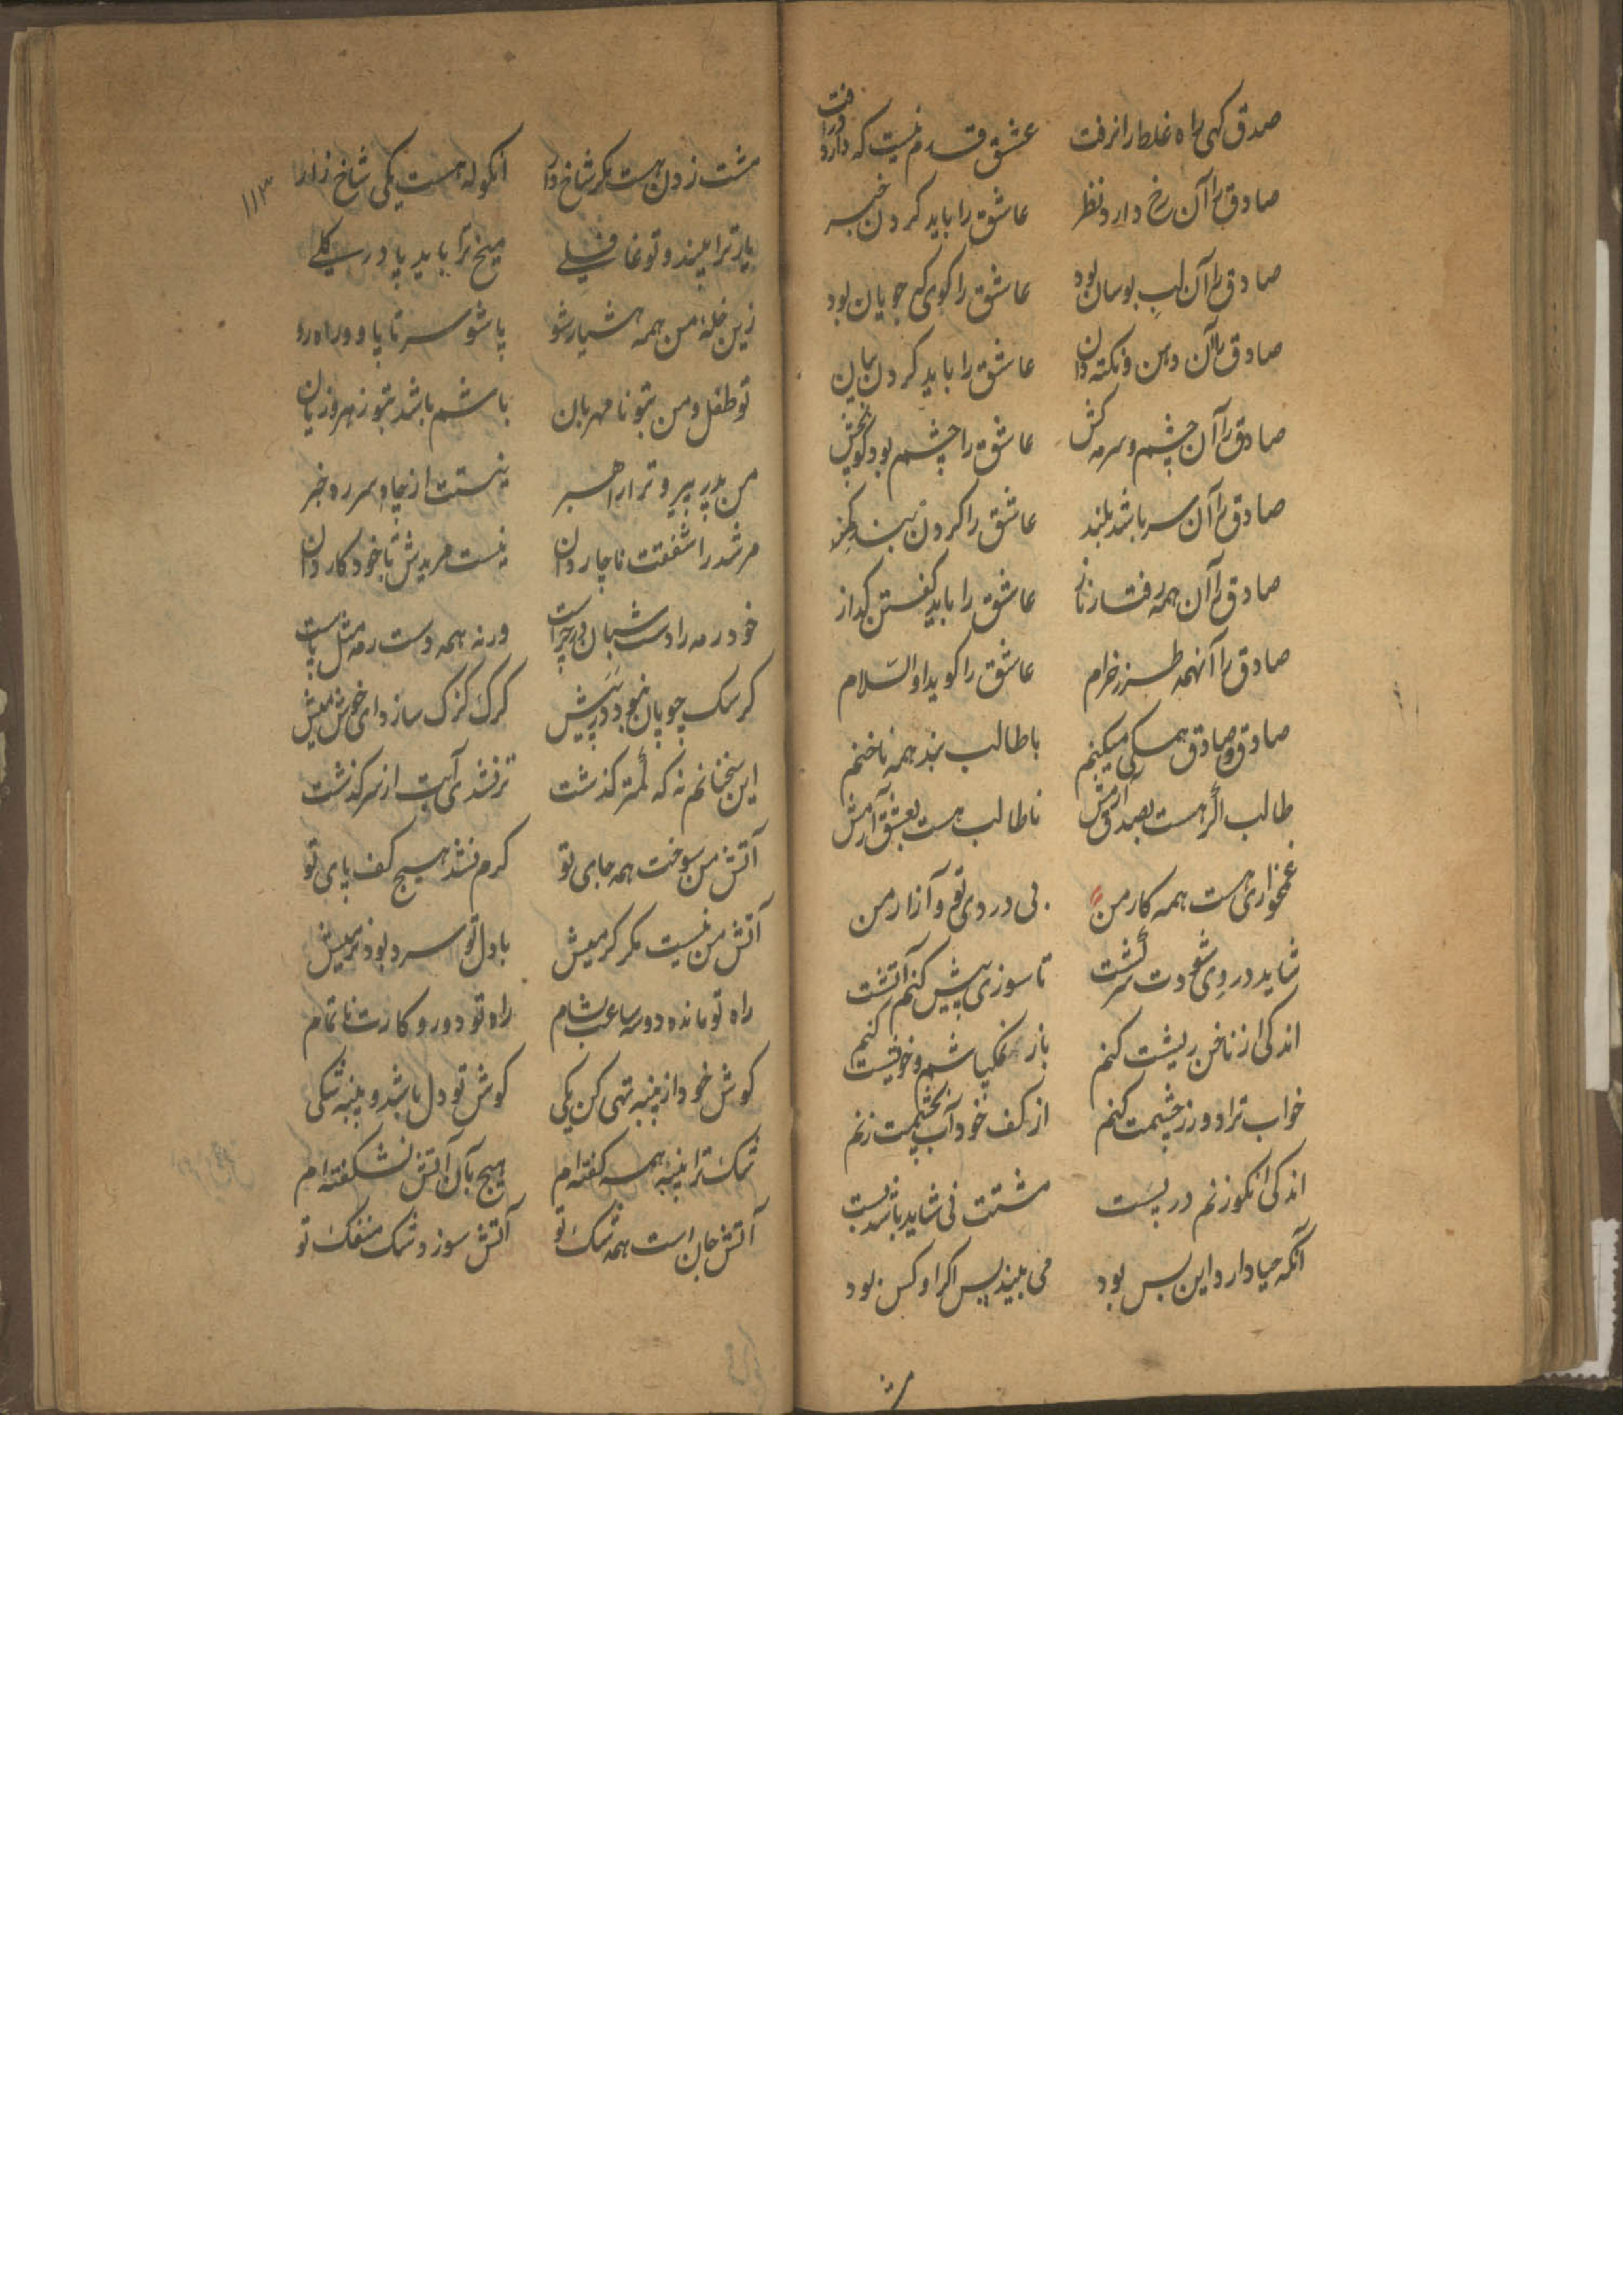 صدق کهی راه غلط را نرفت عشق قدم نیست که دارد
صادق را آن رخ دارد نظر عاشق را باید کردن خبر
صادق را آن لب بوسان بود عاشق را کوی که جویان بود
صادق را آن دهن و نکته دان عاشق را باید کردن بیان
صادق را آن چشم و سرمه کش عاشق را چشم بود
صادق را آن سر باشد بلند عاشق را کردن
صادق را آن همه رفتار ناز عاشق را باید کفتن کداز
صادق را آنهمه طرز خرام عاشق را کوید او السلام
صادق و صادق همکی میکنم با طالب بند همه ناخنم
طالب اکر هست بصدق آرمش ناطالب هست بعشق آرمش
غمخواری هست همه کار من بی دردی تو و آزار من
شاید دردی شودت تا سوزی پیش کنم آتشت
اندکی از ناخن ریشت کنم باز نمکپاشم و کنم
خواب ترا دور ز چشمت کنم از کف خود آب بچشمت زنم
اندکی انکو زنم در پست مشتت نی شاید باشد بست
آنکه حیا دارد این بس بود می بیند پس اکر او کس بود
۱۱۳
مشت زدن هست مکر شاخ را انکوله هست یکی شاخ
یار ترا بیند و تو غافلی میخ ترا باید پا در کلی
زین همه هشیار شو پا شو سر تا پا و راه رو
تو طفل و من بتو نا مهربان باشم باشد بتو زهر و زیان
من پدر پیر و ترا راهبر نیستت از چاه و سر ره خبر
مرشد را شفقت ناچار دان نیست مریدش تا خود کاردان
خود رمه را دست شبان ورنه همه دست رمه مثل پاست
کر سک چوپان نبود در پیش کرک کزک سازد ای خوش ز میش
این سخنانم نه که کذشت تر نشدی آبت از سر کذشت
آتش من سوخت همه جای تو کرم نشد هیچ کف پای تو
آتش من نیست مکر کرمیش با دل تو سرد بود نرمیش
راه تو مانده دو سه ساعت بشام راه تو دور و کارت ناتمام
کوش خود از پنبه تهی کن یکی کوش تو دل باشد و پنبه شکی
شک ترا پنبه همه کفته ام هیچ بآن آتش نشکفته ام
آتش جان است همه شک تو آتش سوزد شک منفک تو